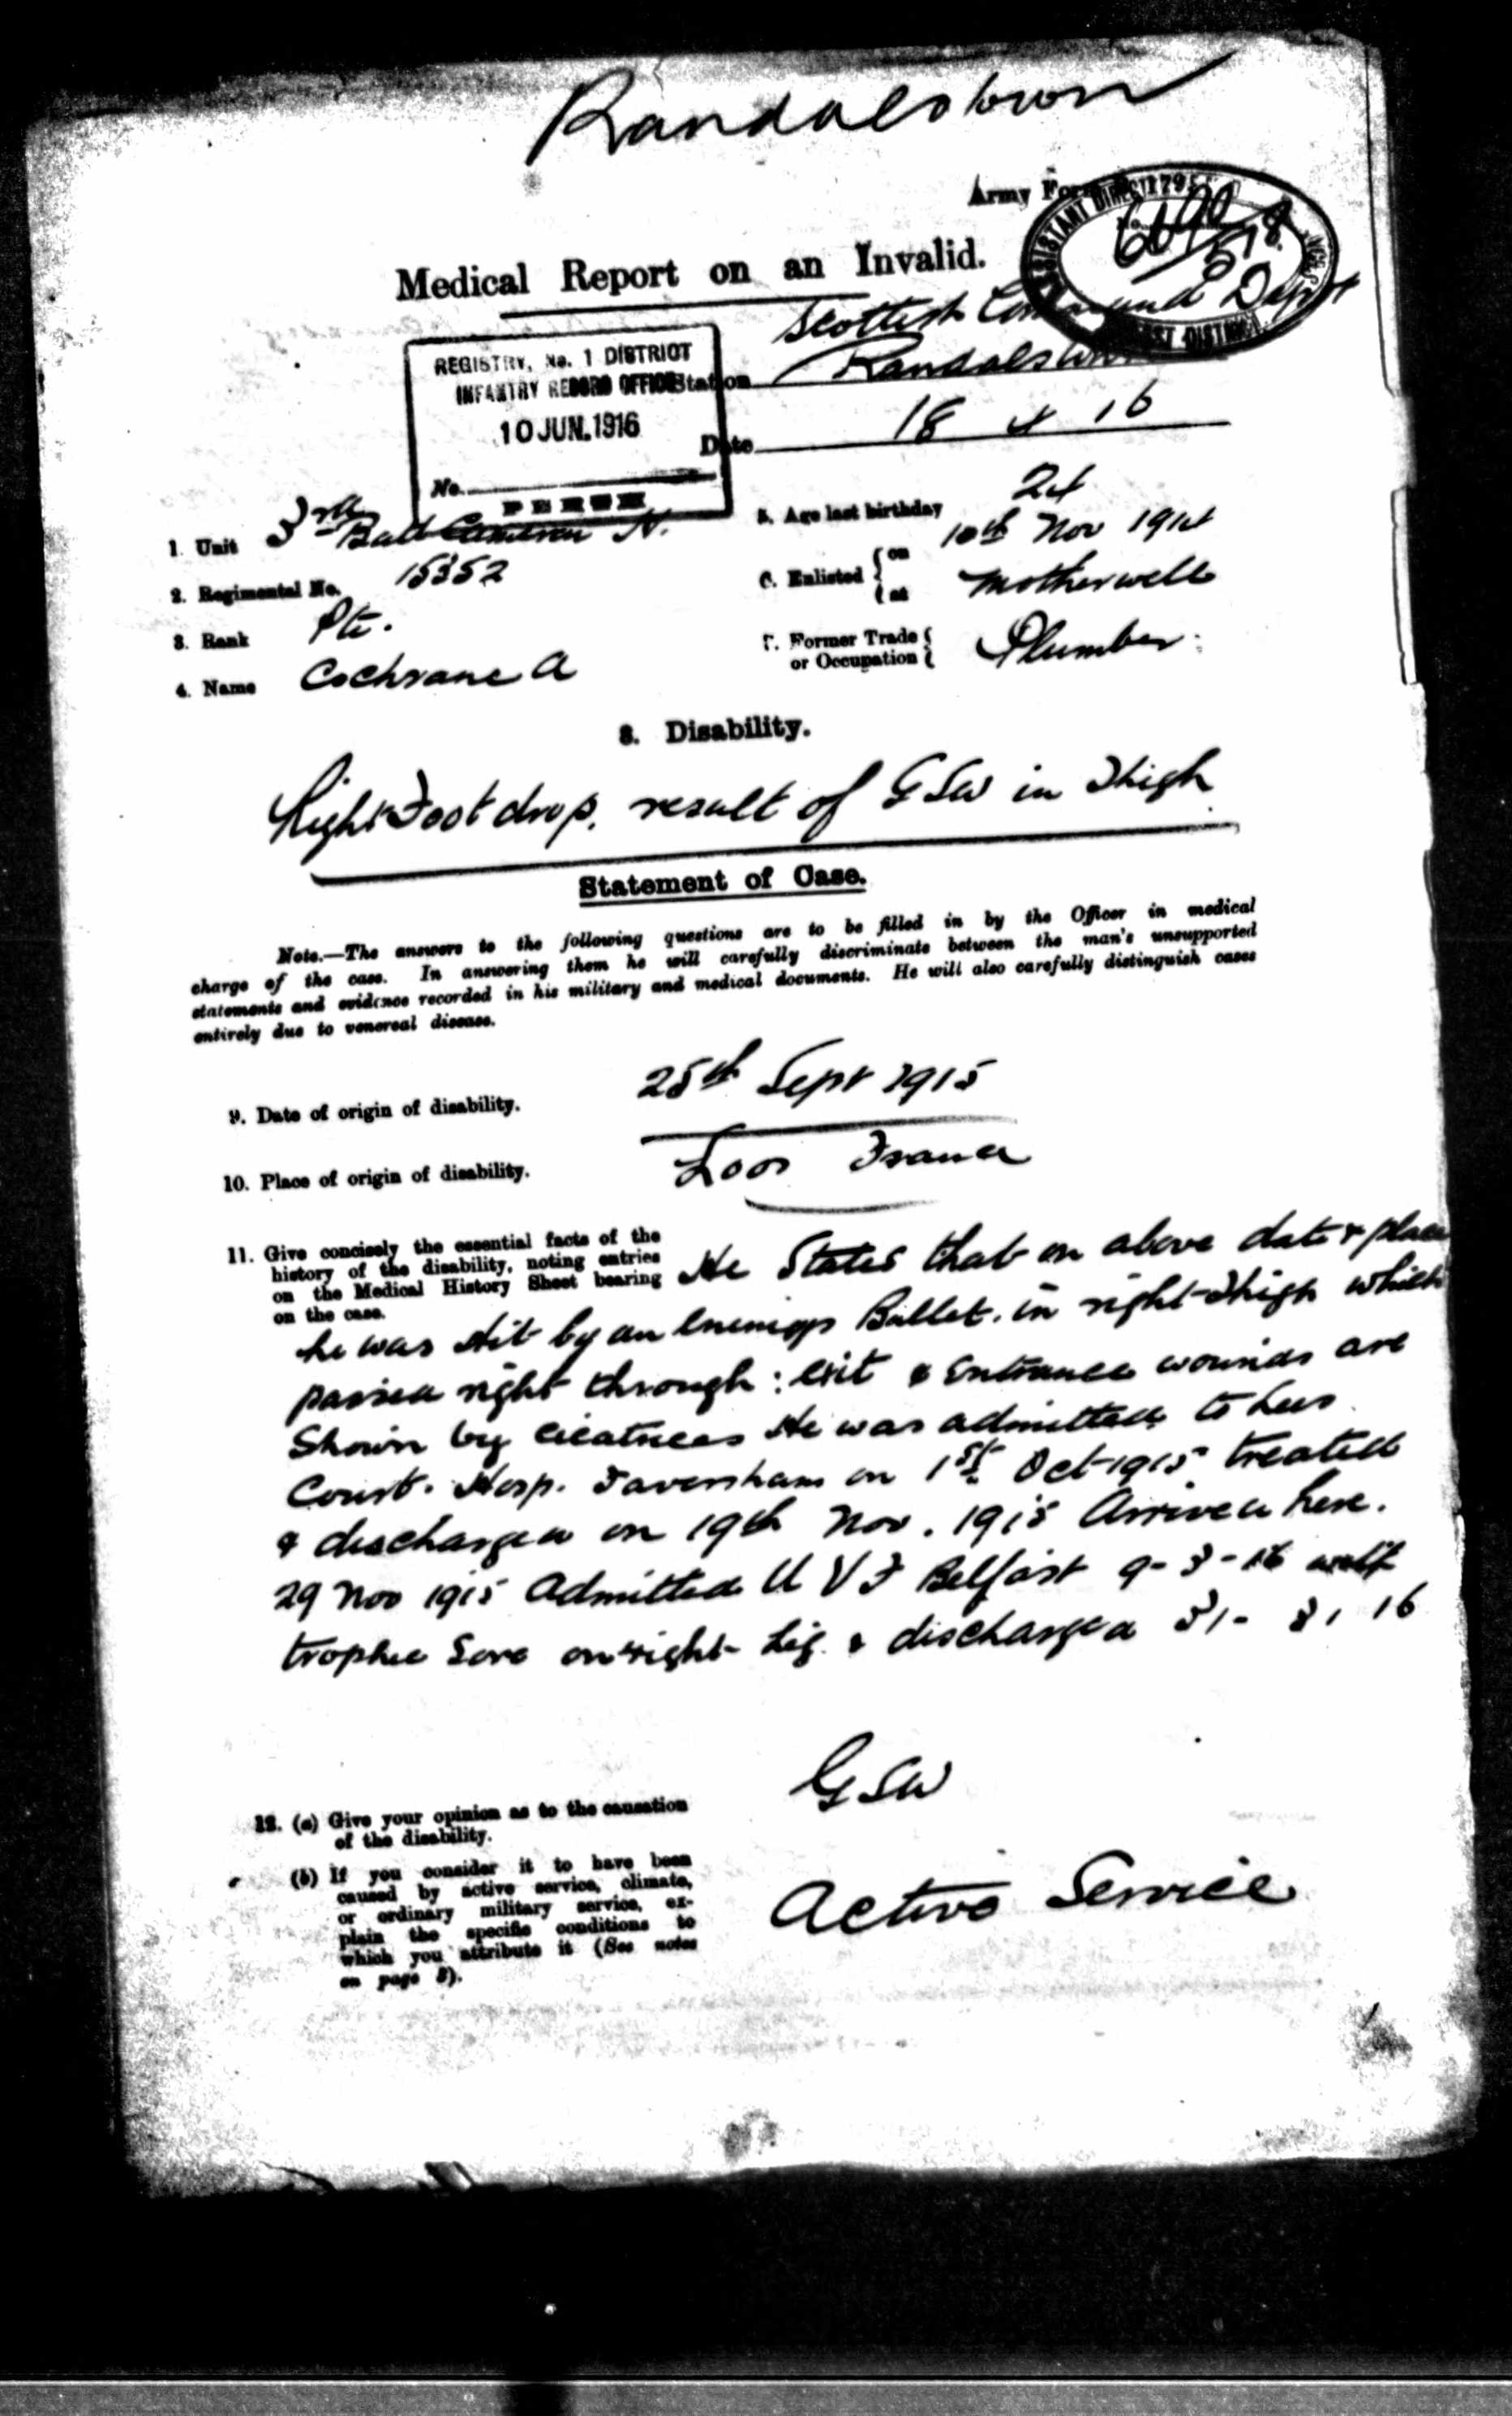 Randalstown
Army Form 179
ASSISTANT DIREC
6690
578
DISTRICT
Medical Report on an Invalid.
Scottish Command Depot
REGISTRY, No. 1 DISTRICT
INFANTRY RECORD OFFICE
10 JUN. 1916
No.
PERTH
Station Randalstown
Date 18 4 16
1. Unit 3rd Batt Cameron H.
2. Regimental No. 15352
3. Rank Pte.
4. Name Cochrane A
5. Age last birthday 24
6. Enlisted { on 10th Nov 1914
{ at Motherwell
7. Former Trade {
or Occupation { Plumber.
8. Disability.
Right Foot drop, result of GSW in Thigh
Statement of Case.
Note.—The answers to the following questions are to be filled in by the Officer in medical
charge of the case. In answering them he will carefully discriminate between the man's unsupported
statements and evidence recorded in his military and medical documents. He will also carefully distinguish cases
entirely due to venereal disease.
9. Date of origin of disability. 25th Sept 1915
10. Place of origin of disability. Loos France
11. Give concisely the essential facts of the
history of the disability, noting entries
on the Medical History Sheet bearing
on the case.
He States that on above date & place
he was Hit by an Enemys Bullet. in right Thigh which
passed right through: exit & Entrance wounds are
Shown by cicatrices He was admitted to Lees
Court. Hosp. Faversham on 1st Oct 1915 treated
& discharged on 19th Nov. 1915 Arrived here.
29 Nov 1915 Admitted U V F Belfast 9-3-16 with
trophic Sore on right Leg. & discharged 31- 3, 16
12. (a) Give your opinion as to the causation
of the disability.
GSW
(b) If you consider it to have been
caused by active service, climate,
or ordinary military service, ex-
plain the specific conditions to
which you attribute it (See notes
on page 3).
Active Service